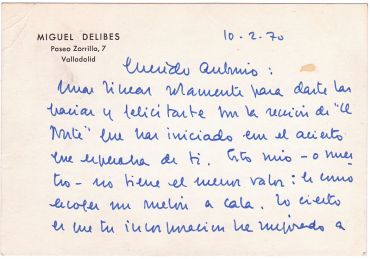 MIGUEL DELIBES
Paseo Zorrilla, 7
Valladolid
10-2-70
Querido Antonio:
Unas líneas solamente para darte las
gracias y felicitarte por la sección de "El
Norte" que has iniciado con el acierto
que esperaba de ti. Esto mío - o nues
tro - no tiene el menor valor: es como
escoger un melón a cala. Lo cierto
es que tu incorporación ha mejorado a